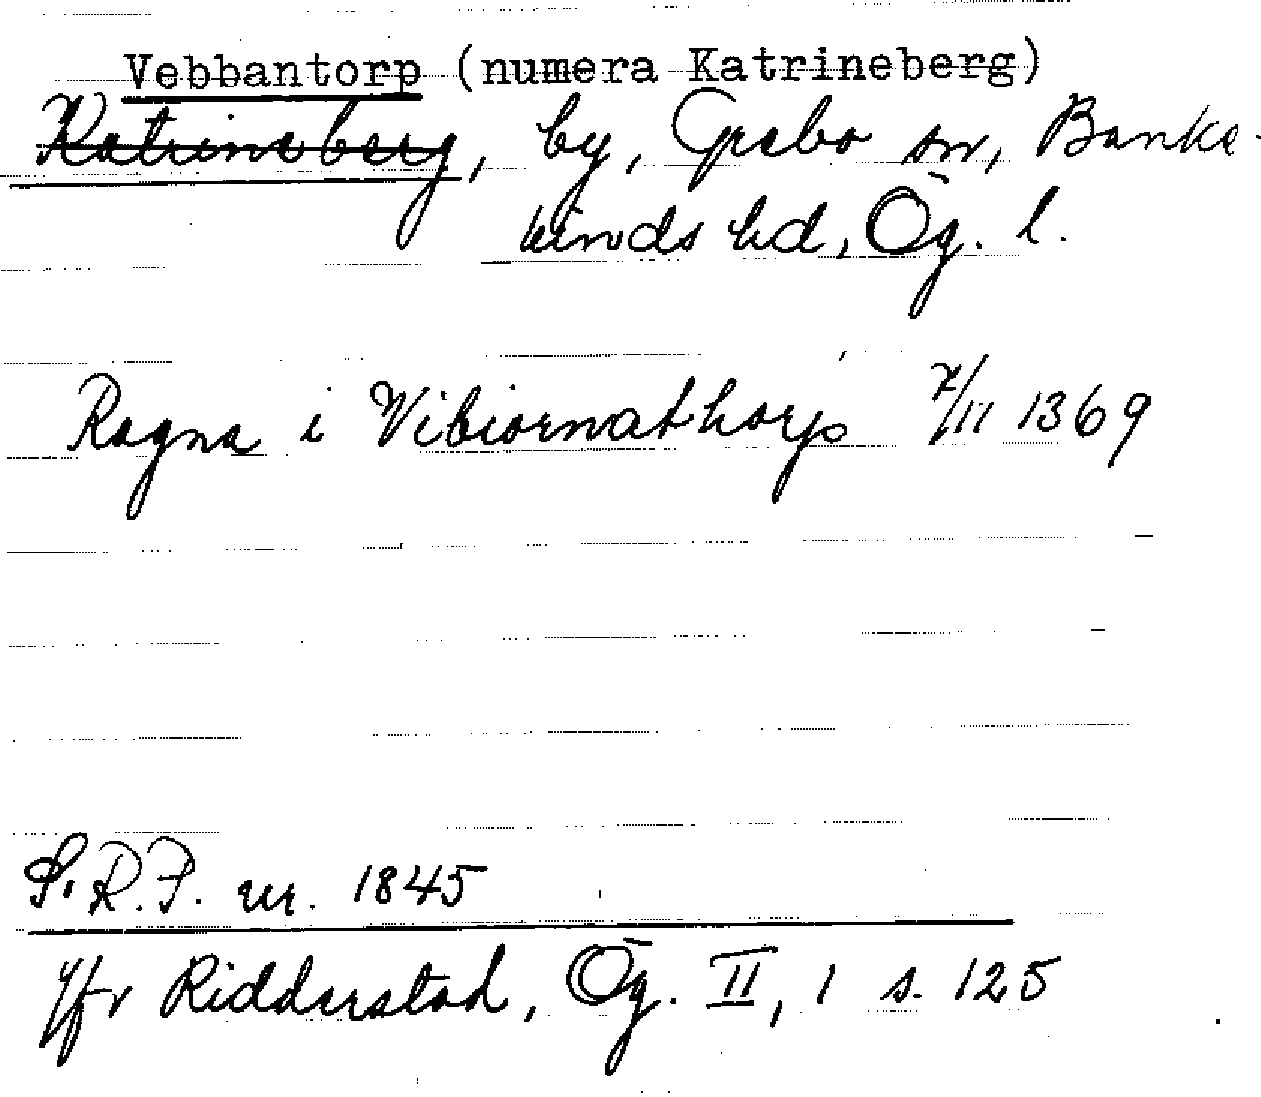 Vebbantorp (numera Katrineberg)
Katrineberg, by, Grebo sn, Banke-
kinds hd, Ög. l.
Ragna i Vibiornathorp 7/11 1369
S.R.P. nr. 1845
Jfr Ridderstad, Ög. II, 1 s. 125